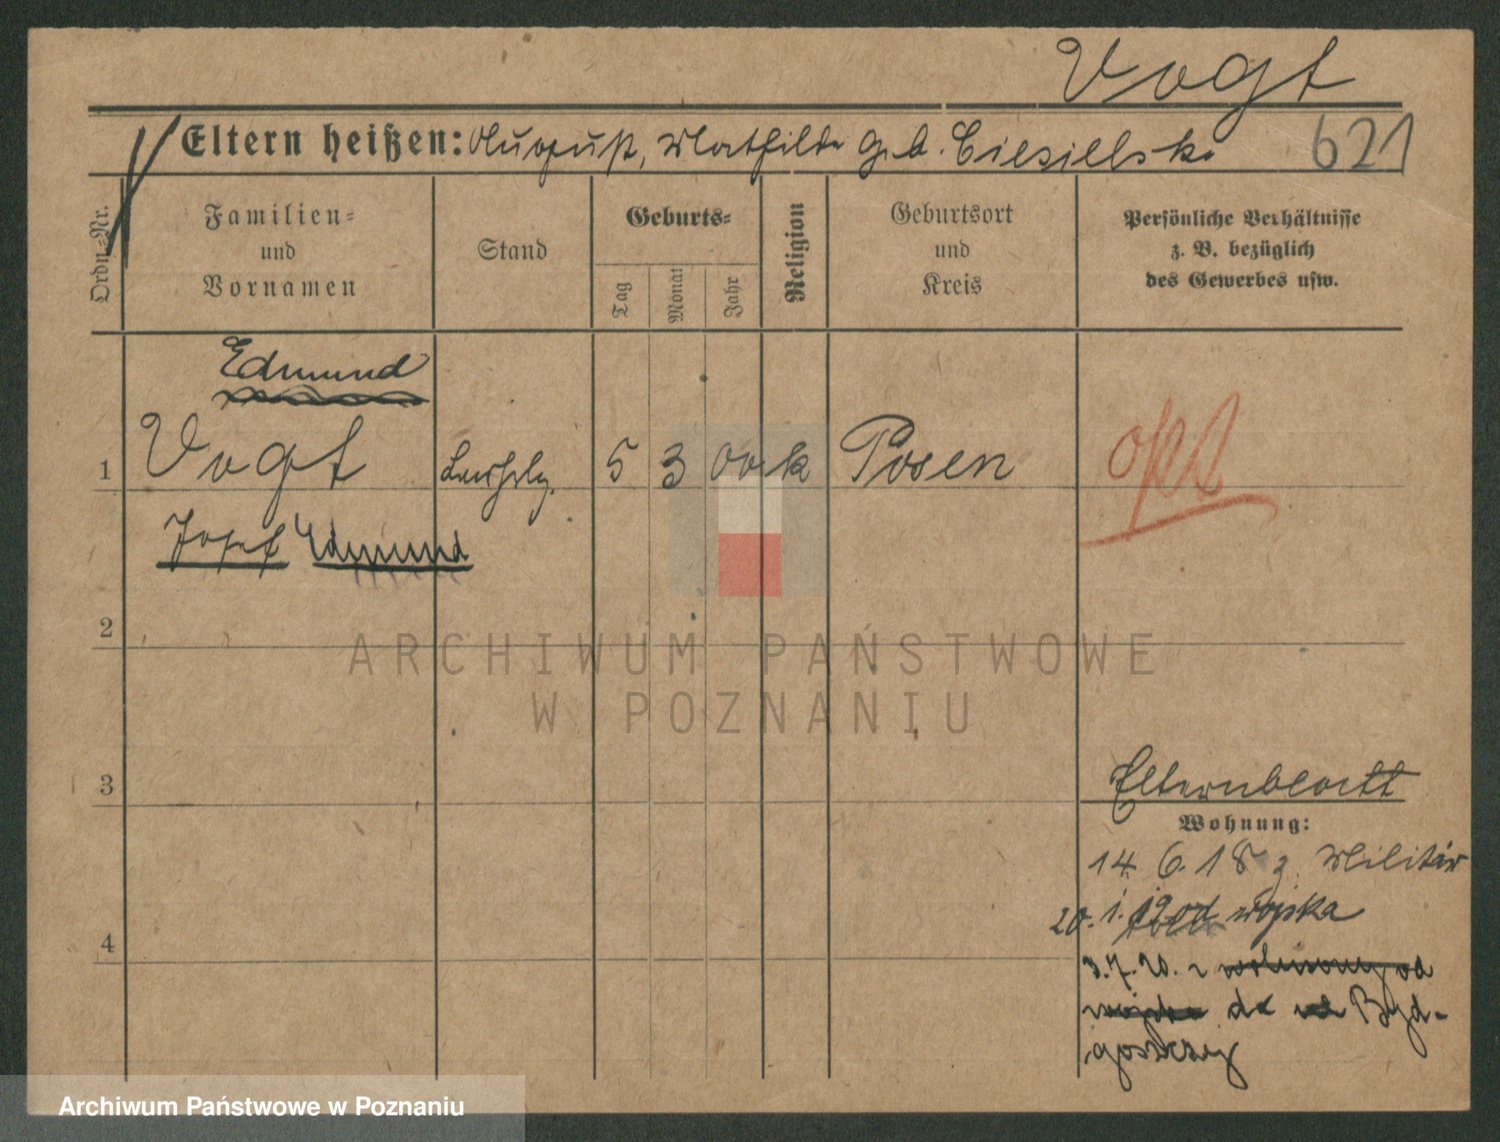 Vogt
Eltern heißen: August, Mathilde geb. Ciesielska
621
Ordn=Nr.
Familien=
und
Vornamen
Stand
Geburts=
Tag
Monat
Jahr
Religion
Geburtsort
und
Kreis
Persönliche Verhältnisse
z. B. bezüglich
des Gewerbes usw.
Edmund
1 Vogt 5 3 00 k Posen
Josef Edmund
2
ARCHIWUM PAŃSTWOWE
W POZNANIU
3
Elternblatt
Wohnung:
14. 6. 18 z. Militär
20. 1. 19 od wojska
4
3. 7. 20. wolniony od
wojska do Byd-
goszczy
Archiwum Państwowe w Poznaniu